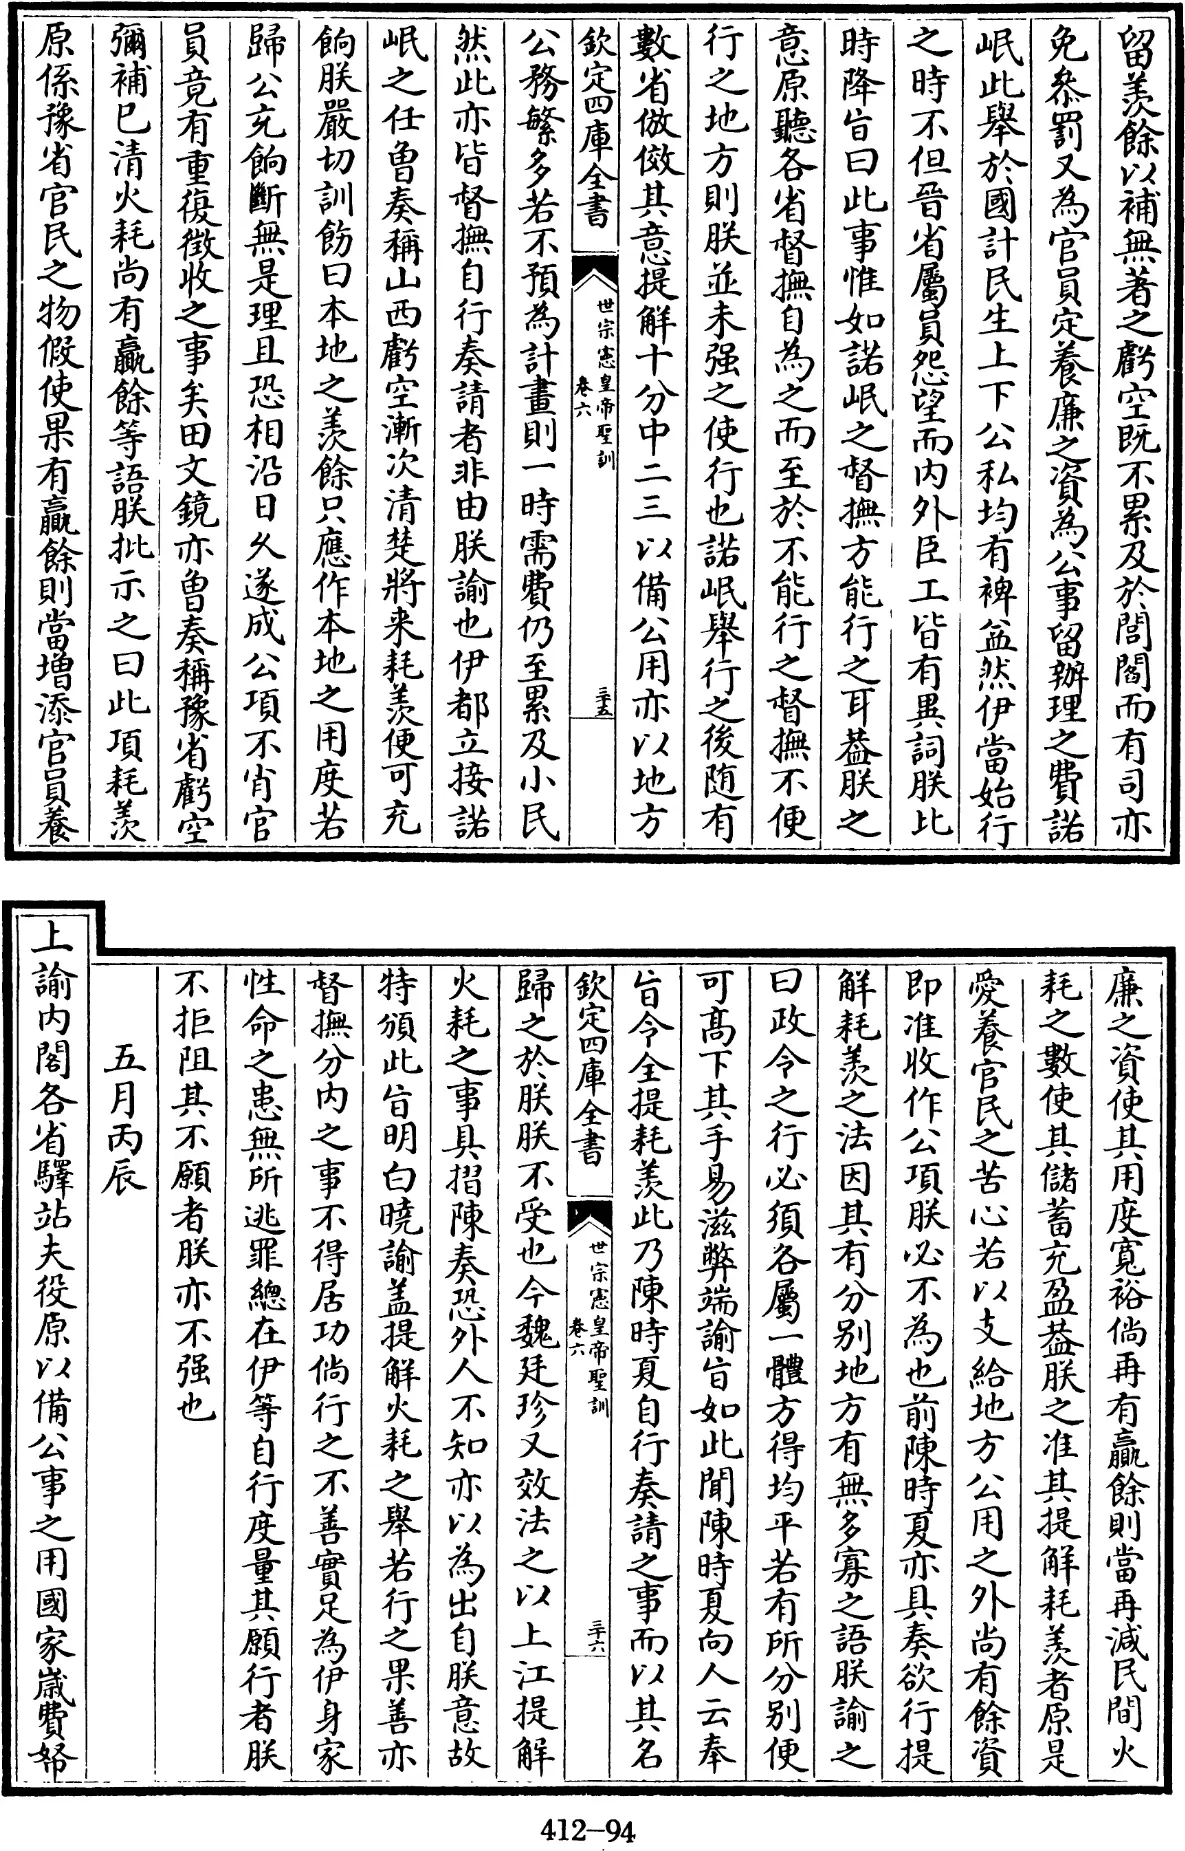 留羨餘以補無著之虧空既不累及於閭閻而有司亦
免叅罰又為官員定養廉之資為公事留辦理之費諾
岷此舉於國計民生上下公私均有裨益然伊當始行
之時不但晉省屬員怨望而内外臣工皆有異詞朕比
時降旨曰此事惟如諾岷之督撫方能行之耳葢朕之
意原聽各省督撫自為之而至於不能行之督撫不便
行之地方則朕並未强之使行也諾岷舉行之後随有
數省倣傚其意提解十分中二三以備公用亦以地方
欽定四庫全書
世宗憲皇帝聖訓
卷六
三十五
公務繁多若不預為計畫則一時需費仍至累及小民
然此亦皆督撫自行奏請者非由朕諭也伊都立接諾
岷之任曾奏稱山西虧空漸次清楚將来耗羨便可充
餉朕嚴切訓飭曰本地之羨餘只應作本地之用度若
歸公充餉斷無是理且恐相沿日乆遂成公項不肖官
員竟有重復徴收之事矣田文鏡亦曾奏稱豫省虧空
彌補已清火耗尚有贏餘等語朕批示之曰此項耗羨
原係豫省官民之物假使果有贏餘則當增添官員養
廉之資使其用度寛裕倘再有贏餘則當再減民間火
耗之數使其儲蓄充盈葢朕之准其提解耗羨者原是
愛養官民之苦心若以支給地方公用之外尚有餘資
即准收作公項朕必不為也前陳時夏亦具奏欲行提
解耗羨之法因其有分别地方有無多寡之語朕諭之
曰政令之行必須各屬一體方得均平若有所分别便
可高下其手易滋弊端諭旨如此聞陳時夏向人云奉
旨令全提耗羨此乃陳時夏自行奏請之事而以其名
欽定四庫全書
世宗憲皇帝聖訓
卷六
三十六
歸之於朕朕不受也今魏廷珍又效法之以上江提解
火耗之事具摺陳奏恐外人不知亦以為出自朕意故
特頒此旨明白曉諭盖提解火耗之舉若行之果善亦
督撫分内之事不得居功倘行之不善實足為伊身家
性命之患無所逃罪總在伊等自行度量其願行者朕
不拒阻其不願者朕亦不强也
五月丙辰
上諭内閣各省驛站夫役原以備公事之用國家嵗費帑
412-94